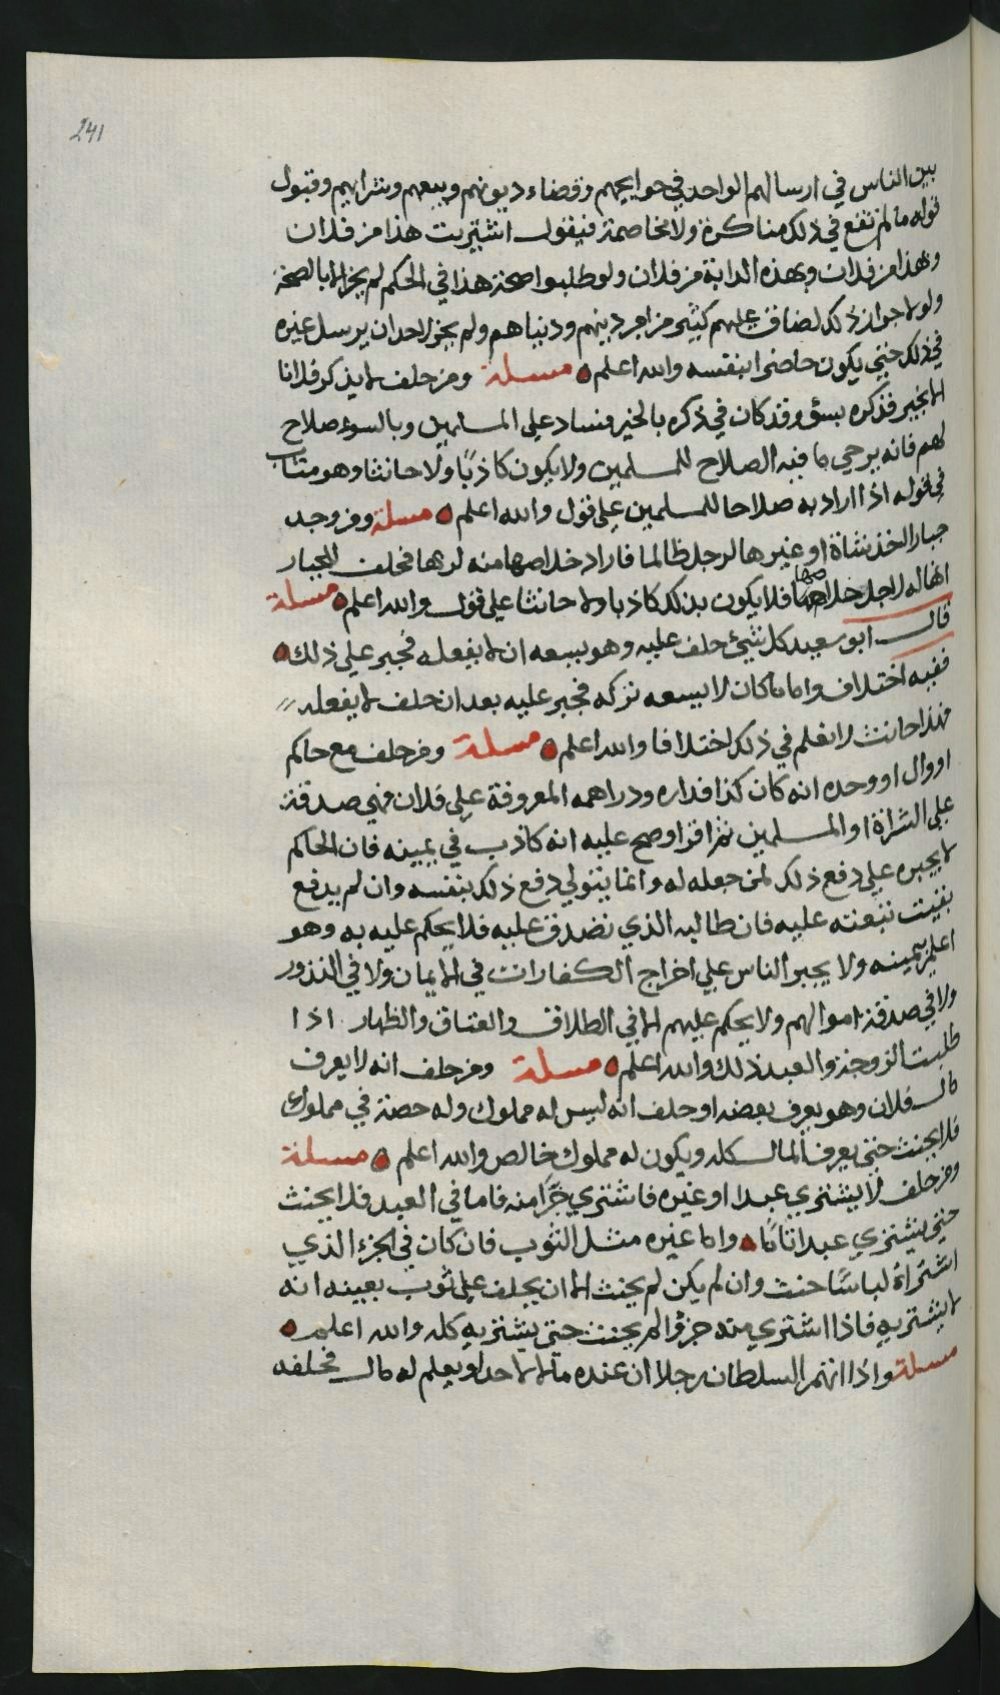 241
بين الناس في ارسالهم الواحد في حوايجهم وقضاء ديونهم وبيعهم وشرايهم وقبول
قوله ما لم تقع في ذلك مناكرة ولا مخاصمة فيقول اشتريت هذا من فلان
وهذا من فلان وبهذه الدابة من فلان ولو طلبوا صحة هذا في الحكم لم يجز الا بالصحة
ولولا جواز ذلك لضاق عليهم كثير من امر دينهم ودنياهم ولم يجز لاحد ان يرسل غيره
في ذلك حتى يكون حاضرا بنفسه والله اعلم مسلة ومن حلف لا يذكر فلانا
الا بخير فذكره بسؤ وقد كان في ذكره بالخير فساد على المسلمين وبالسوء صلاح
لهم فانه يرجى ما فيه الصلاح للمسلمين ولا يكون كاذبا ولا حانثا وهو مثاب
في قوله اذا اراد به صلاحا للمسلمين على قول والله اعلم مسلة ومن وجد
جبارا اخذ شاة او غيرها لرجل ظالما فاراد خلاصها منه لربها فحلف للجبار
انها له لاجل خلاصها فلا يكون بذلك كاذبا ولا حانثا على قول والله اعلم مسلة
قال ابو سعيد كل شيئ حلف عليه وهو يسعه ان لا يفعله فجبر على ذلك
ففيه اختلاف واما ما كان لا يسعه تركه فجبر عليه بعد ان حلف لا يفعله
فهذا حانث لا نعلم في ذلك اختلافا والله اعلم مسلة ومن حلف مع حاكم
او وال او وحده انه كان كذا فداره ودراهمه المعروفة على فلان فهي صدقة
على الشراة او المسلمين ثم اقر او صح عليه انه كاذب في يمينه فان الحاكم
لا يجبره على دفع ذلك لمن جعله له وانما يتولى دفع ذلك بنفسه وان لم يدفع
بقيت تبعته عليه فان طالبه الذي تصدق عليه فلا يحكم عليه به وهو
اعلم بيمينه ولا يجبر الناس على اخراج الكفارات في الايمان ولا في النذور
ولا في صدقة اموالهم ولا يحكم عليهم الا في الطلاق والعتاق والظهار اذا
طلبت الزوجة والعبد ذلك والله اعلم مسلة ومن حلف انه لا يعرف
مال فلان وهو يعرف بعضه او حلف انه ليس له مملوك وله حصة في مملوك
فلا يحنث حتى يعرف المال كله ويكون له مملوك خالص والله اعلم مسلة
ومن حلف لا يشتري عبدا او غيره فاشترى جزا منه فاما في العبد فلا يحنث
حتى يشتري عبدا تاما واما غيره مثل الثوب فان كان في الجزء الذي
اشتراه لباسا حنث وان لم يكن لم يحنث الا ان يحلف على ثوب بعينه انه
لا يشتريه فاذا اشترى منه جزؤا لم يحنث حتى يشتريه كله والله اعلم
مسلة واذا اتهم السلطان رجلا ان عنده مالا لاحد او يعلم له مال فحلفه